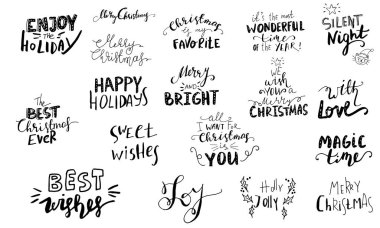 ENJOY
the
HOLIDAY
Merry Christmas
Merry
Christmas
Christmas
is my
FAVORITE
it's the most
WONDERFUL
time
of the YEAR!
SILENT
Night
HAPPY
HOLIDAYS
Merry
AND
BRIGHT
WE
wish
YOU A
Merry
CHRISTMAS
with
Love
The
BEST
Christmas
EVER
SWEET
wishes
all
I WANT FOR
Christmas
IS
YOU
MAGIC
time
BEST
wishes
Joy
Holly
JOLLY
MERRY
CHRISTMAS